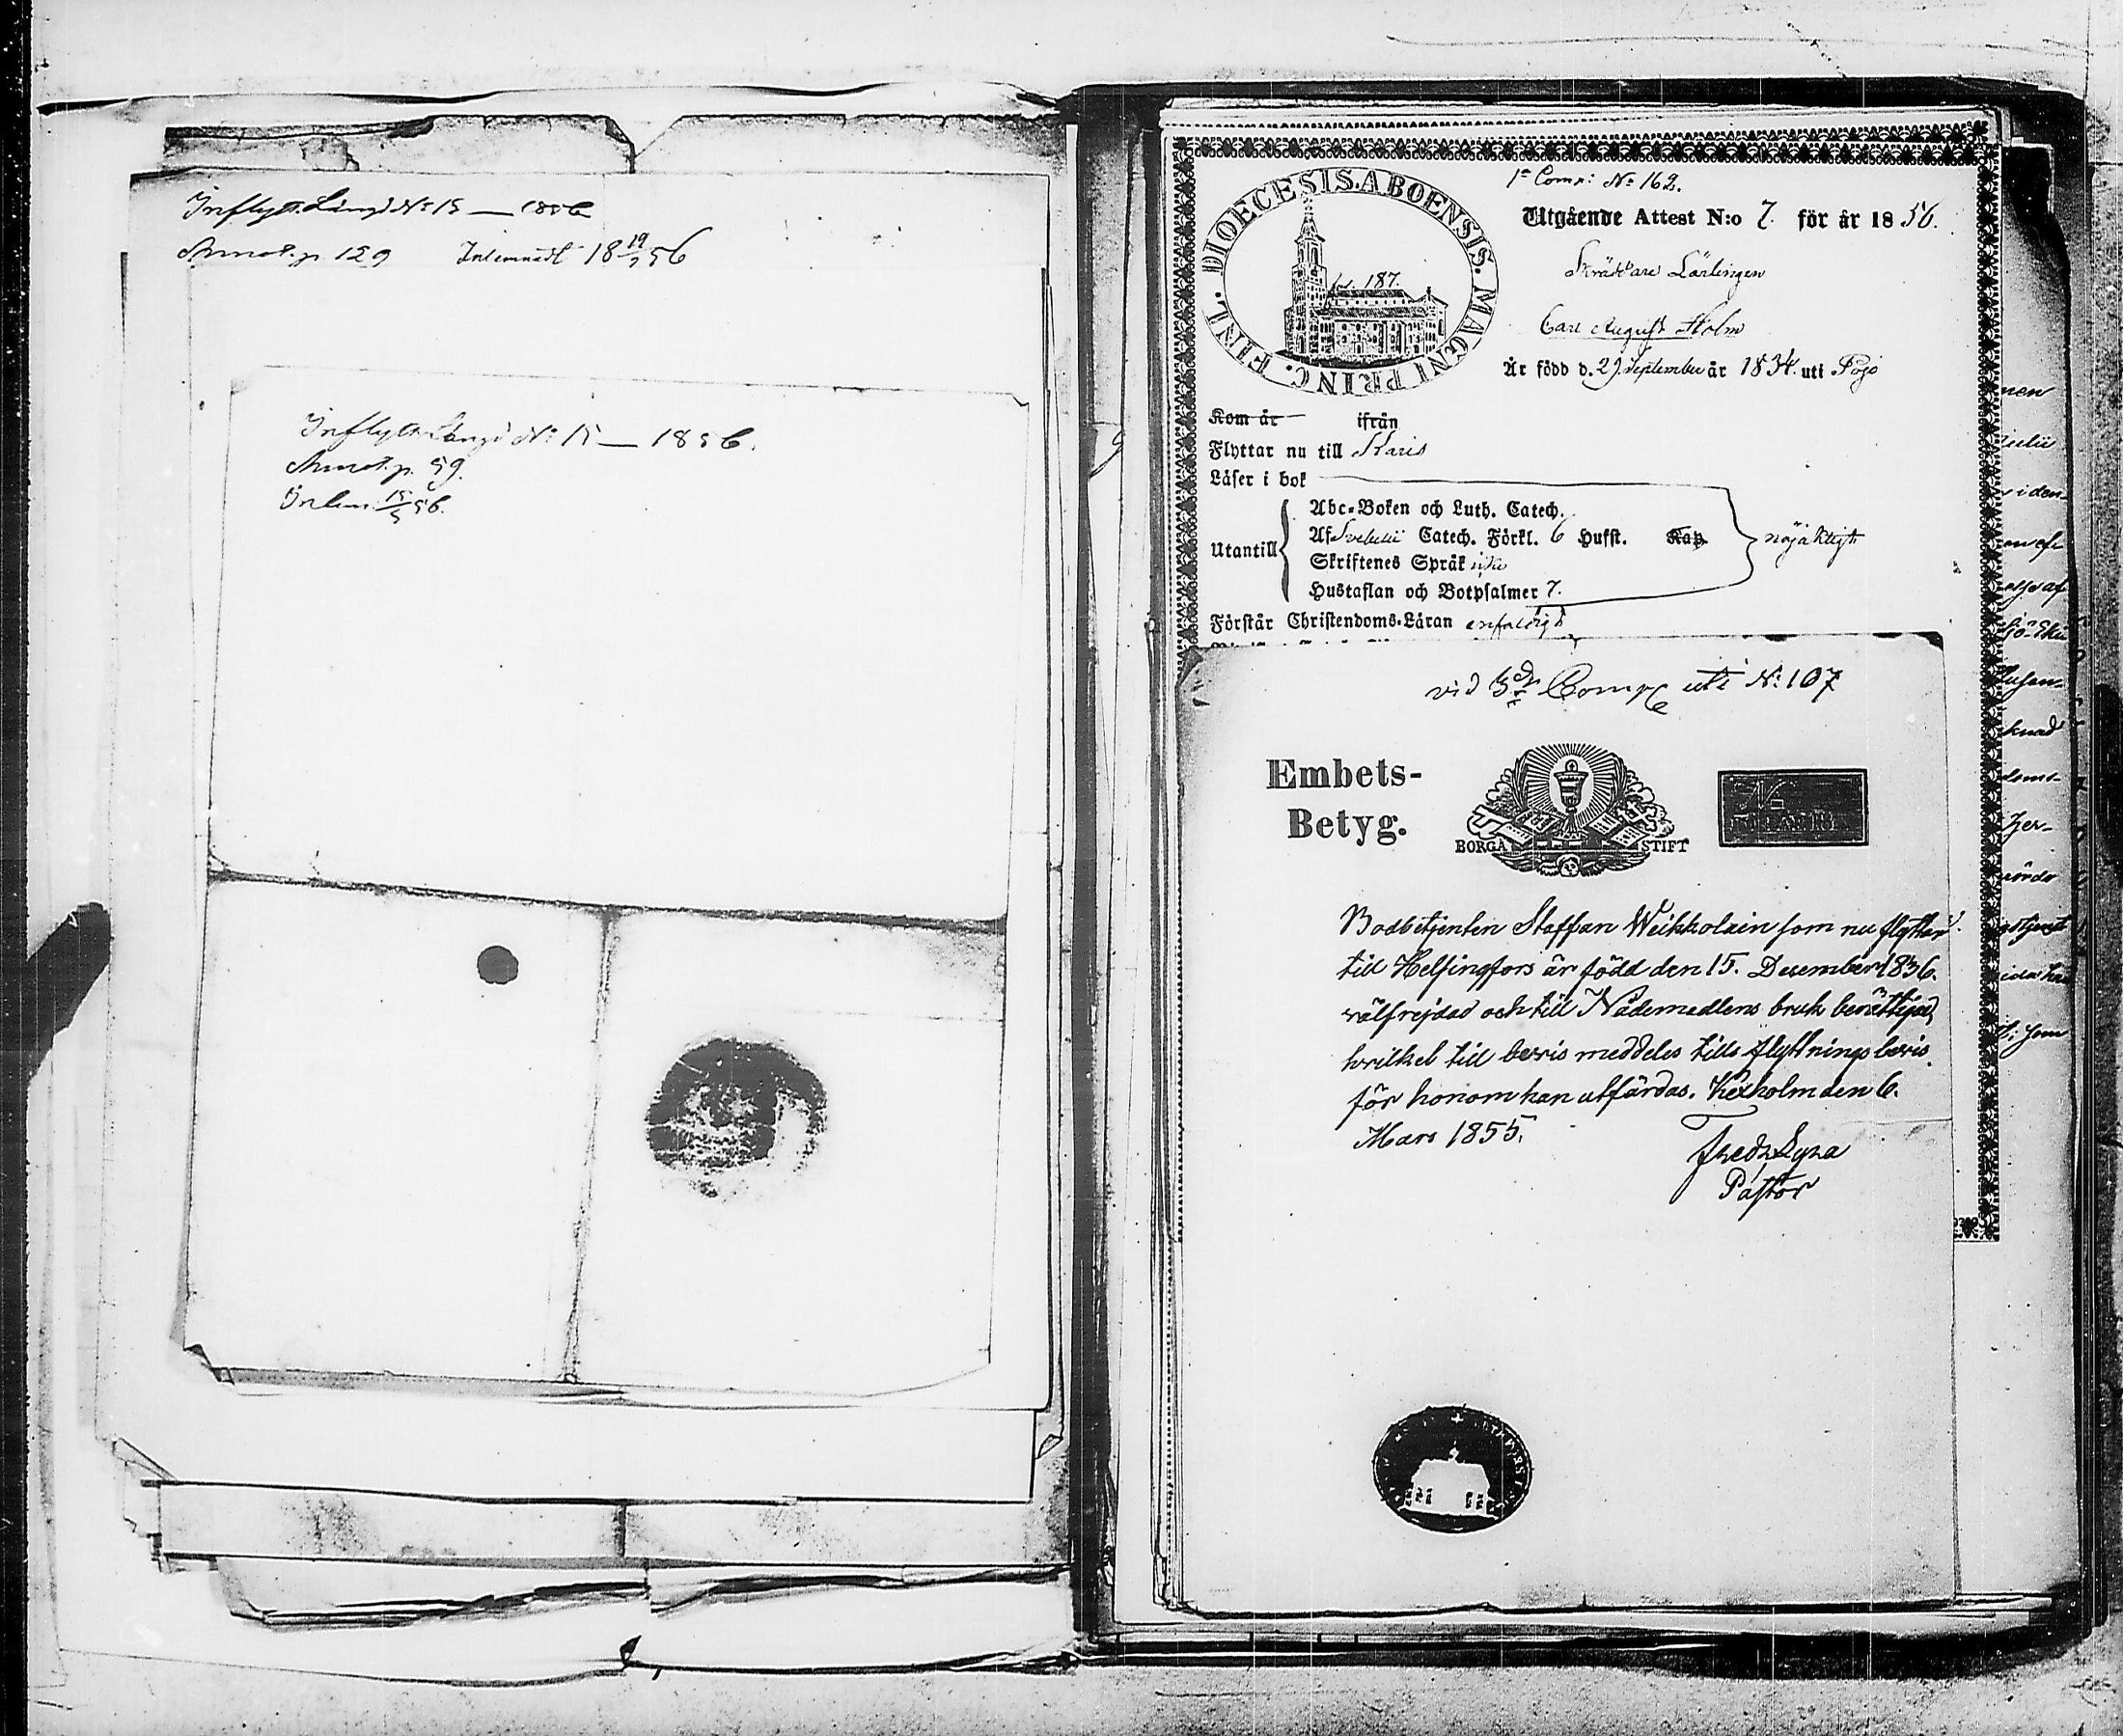 Inflytt. Längd No 15 — 1856
Annot. p. 129 Inlemnadt 18 19/3 56
Inflytt. Längd No 15 — 1856.
Annot. p. 59.
Inlem. 15/5 56.
DIOECESIS. ABOENSIS. MAGNI PRINC. FINL.
187.
1a Comp: No 162.
Utgående Attest N:o 7. för år 1856.
Skräddare Lärlingen
Carl August Holm
Är född d. 29 September år 1834. uti Pojo
Kom år ifrån
Flyttar nu till Karis
Läser i bok
Utantill
Abc-Boken och Luth. Catech.
Af Svebelii Catech. Förkl. 6 Hufst. Kap.
nöjaktigt
Skriftenes Språk
Hustaflan och Botpsalmer 7.
Förstår Christendoms-Läran enfaldigt
vid 3dje Comp uti No 107
Embets-
Betyg.
BORGÅ STIFT
Bodbetjenten Staffan Weikkolain som nu flyttar
till Helsingfors är född den 15. December 1836.
välfrejdad och till Nådemedlens bruk berättigad,
hvilket till bevis meddeles tills flyttningsbevis
för honom kan utfärdas. Kexholm den 6.
Mars 1855.
Fredr Lyra
Pastor